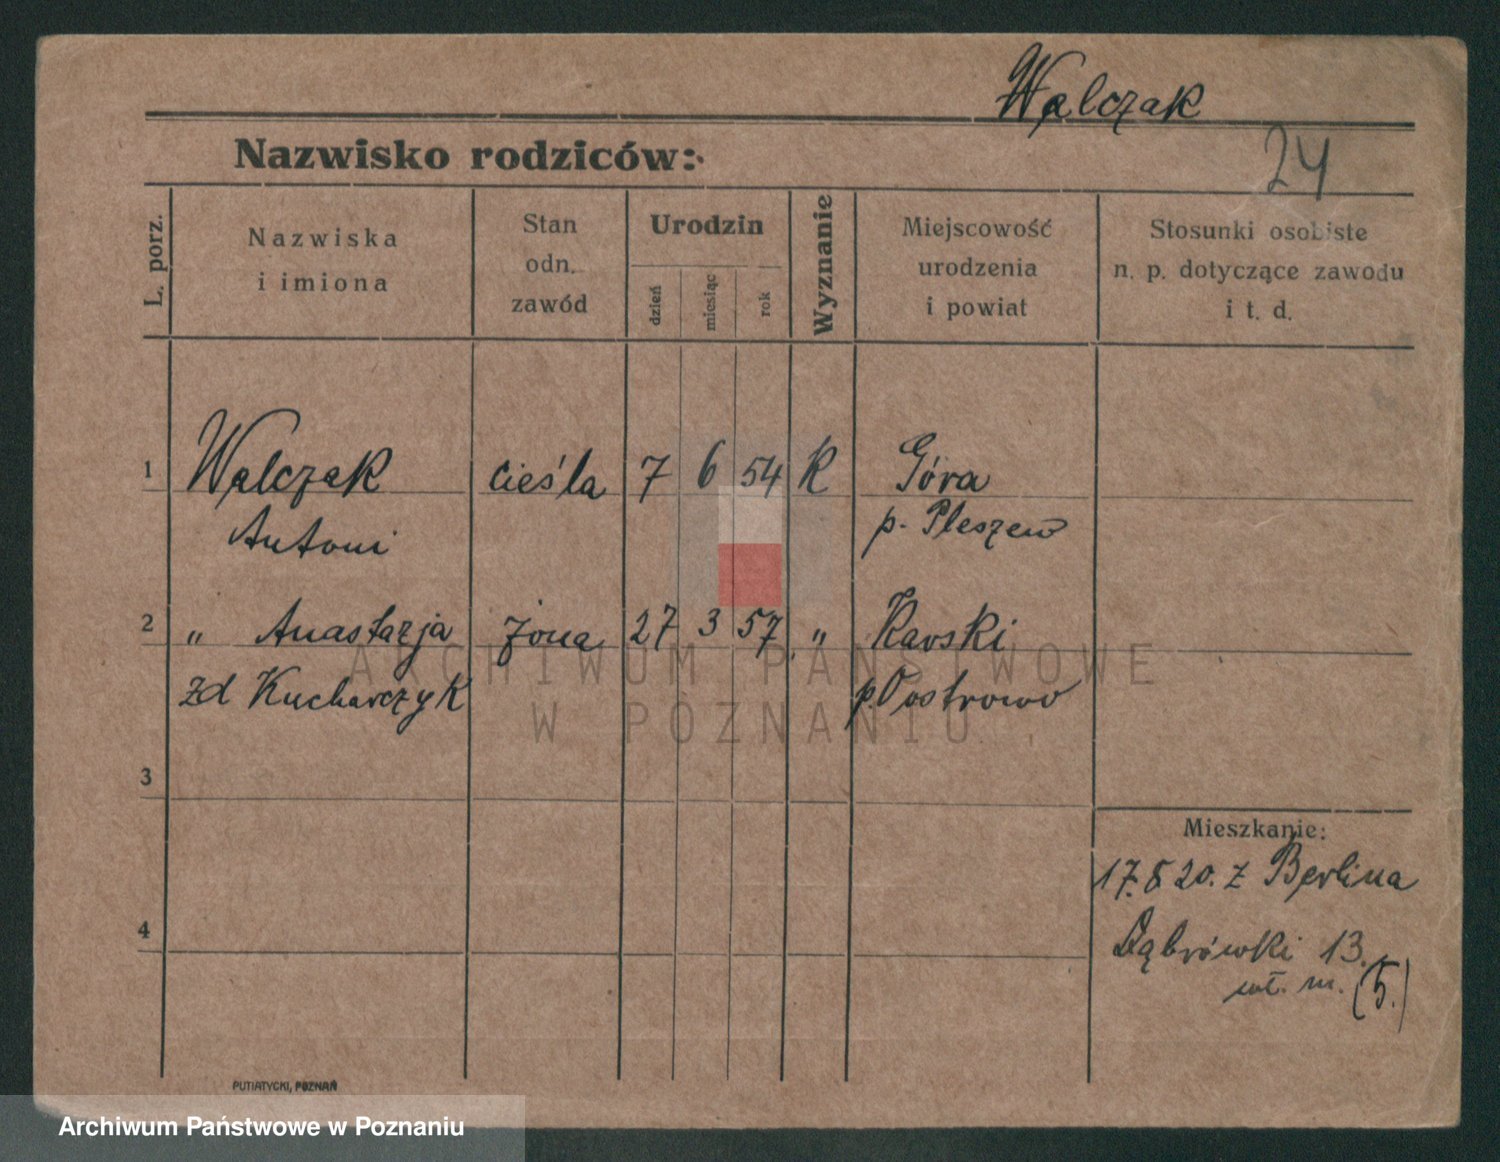 Walczak
24
Nazwisko rodziców:
L. porz.
Nazwiska
i imiona
Stan
odn.
zawód
Urodzin
dzień
miesiąc
rok
Wyznanie
Miejscowość
urodzenia
i powiat
Stosunki osobiste
n. p. dotyczące zawodu
i t. d.
1 Walczak cieśla 7 6 54 K Góra
Antoni p. Pleszew
2 " Anastazja żona 27 3 57 " Karski
zd Kucharczyk p. Ostrowo
3
4
Mieszkanie:
17.8 20. z Berlina
Dąbrówki 13.
wł. m. (5.)
PUTIATYCKI, POZNAŃ
ARCHIWUM PAŃSTWOWE
W POZNANIU
Archiwum Państwowe w Poznaniu